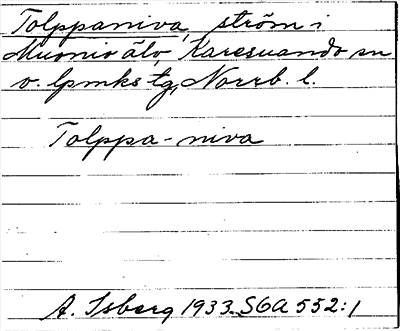 Tolppaniva, ström i
Muonio älv, Karesuando sn
o. lpmks tg, Norrb. l.
Tolppa-niva
A. Isberg 1933. SGA 552:1